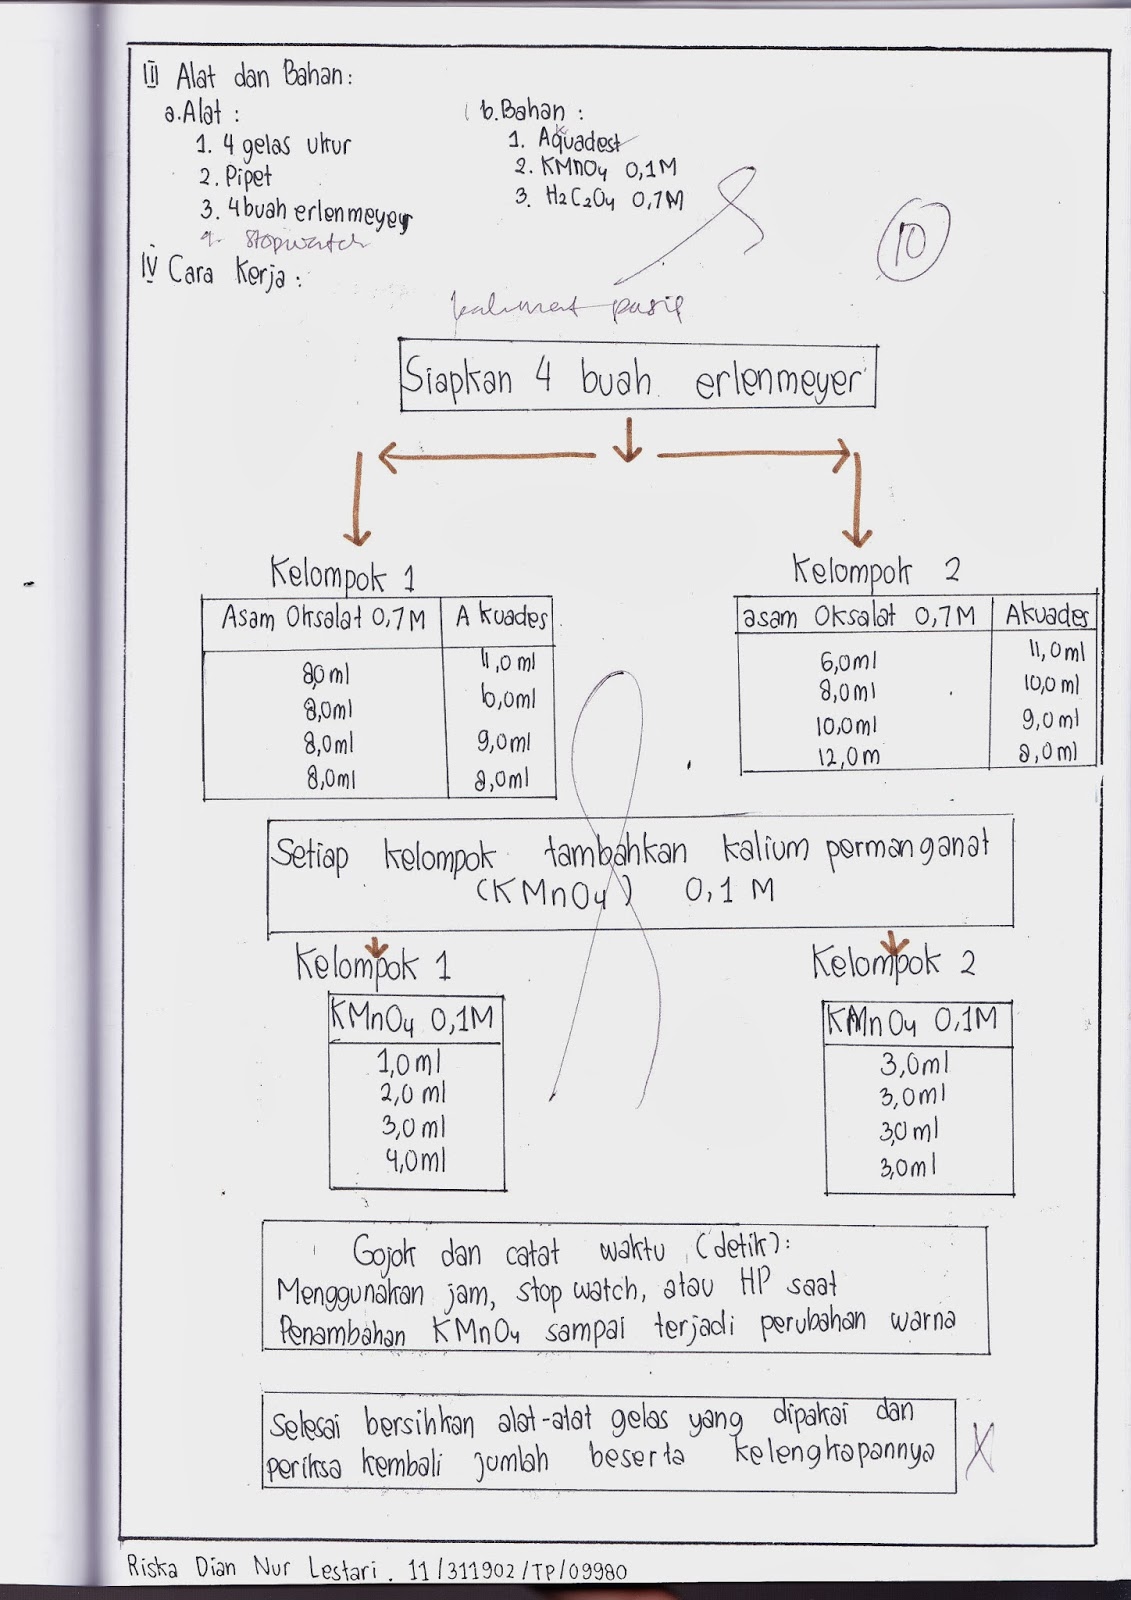 III Alat dan Bahan:
a. Alat :
1. 4 gelas ukur
2. Pipet
3. 4 buah erlenmeyer
4. Stopwatch
b. Bahan :
1. Aquadest
2. KMnO4 0,1M
3. H2C2O4 0,7M
10
IV Cara Kerja :
kalimat pasif
Siapkan 4 buah erlenmeyer
Kelompok 1
Asam Oksalat 0,7M Akuades
8,0ml 11,0ml
8,0ml 10,0ml
8,0ml 9,0ml
8,0ml 8,0ml
Kelompok 2
asam Oksalat 0,7M Akuades
6,0ml 11,0ml
8,0ml 10,0ml
10,0ml 9,0ml
12,0m 8,0ml
Setiap kelompok tambahkan kalium permanganat
(KMnO4) 0,1 M
Kelompok 1
KMnO4 0,1M
1,0ml
2,0ml
3,0ml
4,0ml
Kelompok 2
KMnO4 0,1M
3,0ml
3,0ml
3,0ml
3,0ml
Gojok dan catat waktu (detik):
Menggunakan jam, stop watch, atau HP saat
Penambahan KMnO4 sampai terjadi perubahan warna
Selesai bersihkan alat-alat gelas yang dipakai dan
periksa kembali jumlah beserta kelengkapannya
Riska Dian Nur Lestari. 11/311902/TP/09980